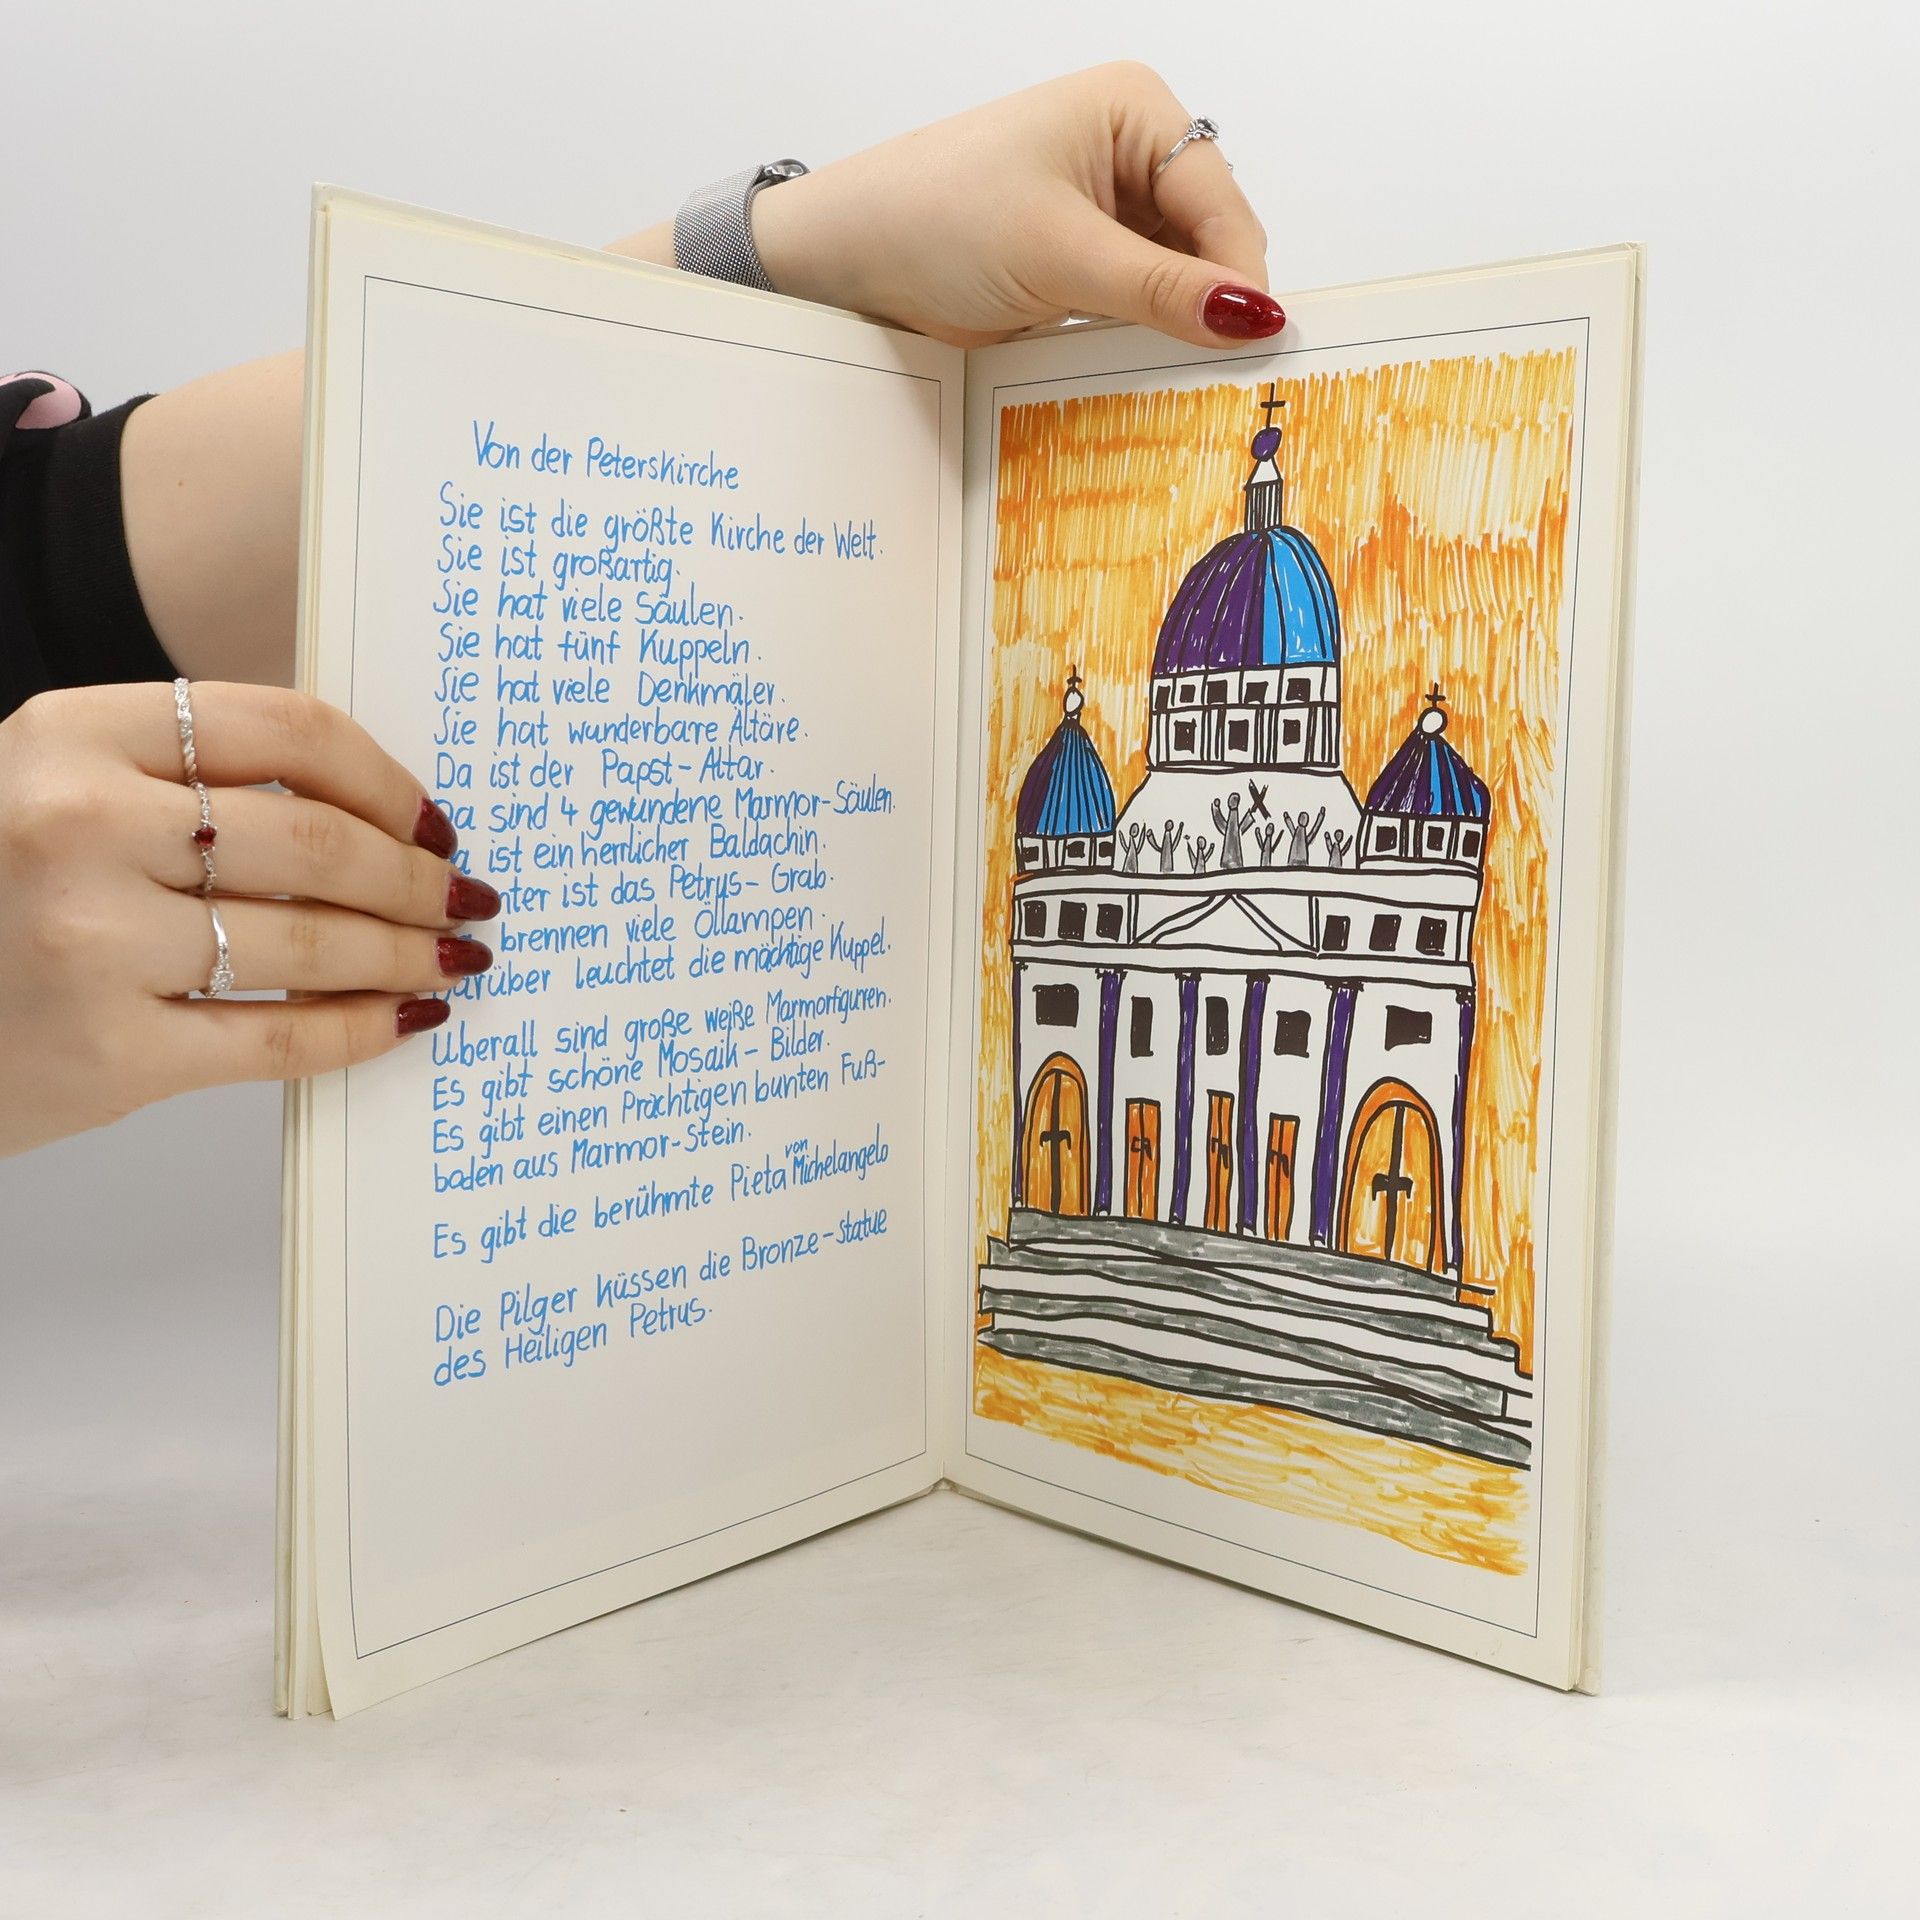 Von der Peterskirche
Sie ist die größte Kirche der Welt.
Sie ist großartig.
Sie hat viele Säulen.
Sie hat fünf Kuppeln.
Sie hat viele Denkmäler.
Sie hat wunderbare Altäre.
Da ist der Papst-Altar.
Da sind 4 gewundene Marmor-Säulen.
Da ist ein herrlicher Baldachin.
ist das Petrus-Grab.
brennen viele Öllampen.
Darüber leuchtet die mächtige Kuppel.
Überall sind große weiße Marmorfiguren.
Es gibt schöne Mosaik-Bilder.
Es gibt einen Prächtigen bunten Fuß-
boden aus Marmor-Stein.
Es gibt die berühmte Pieta von Michelangelo
Die Pilger küssen die Bronze-statue
des Heiligen Petrus.